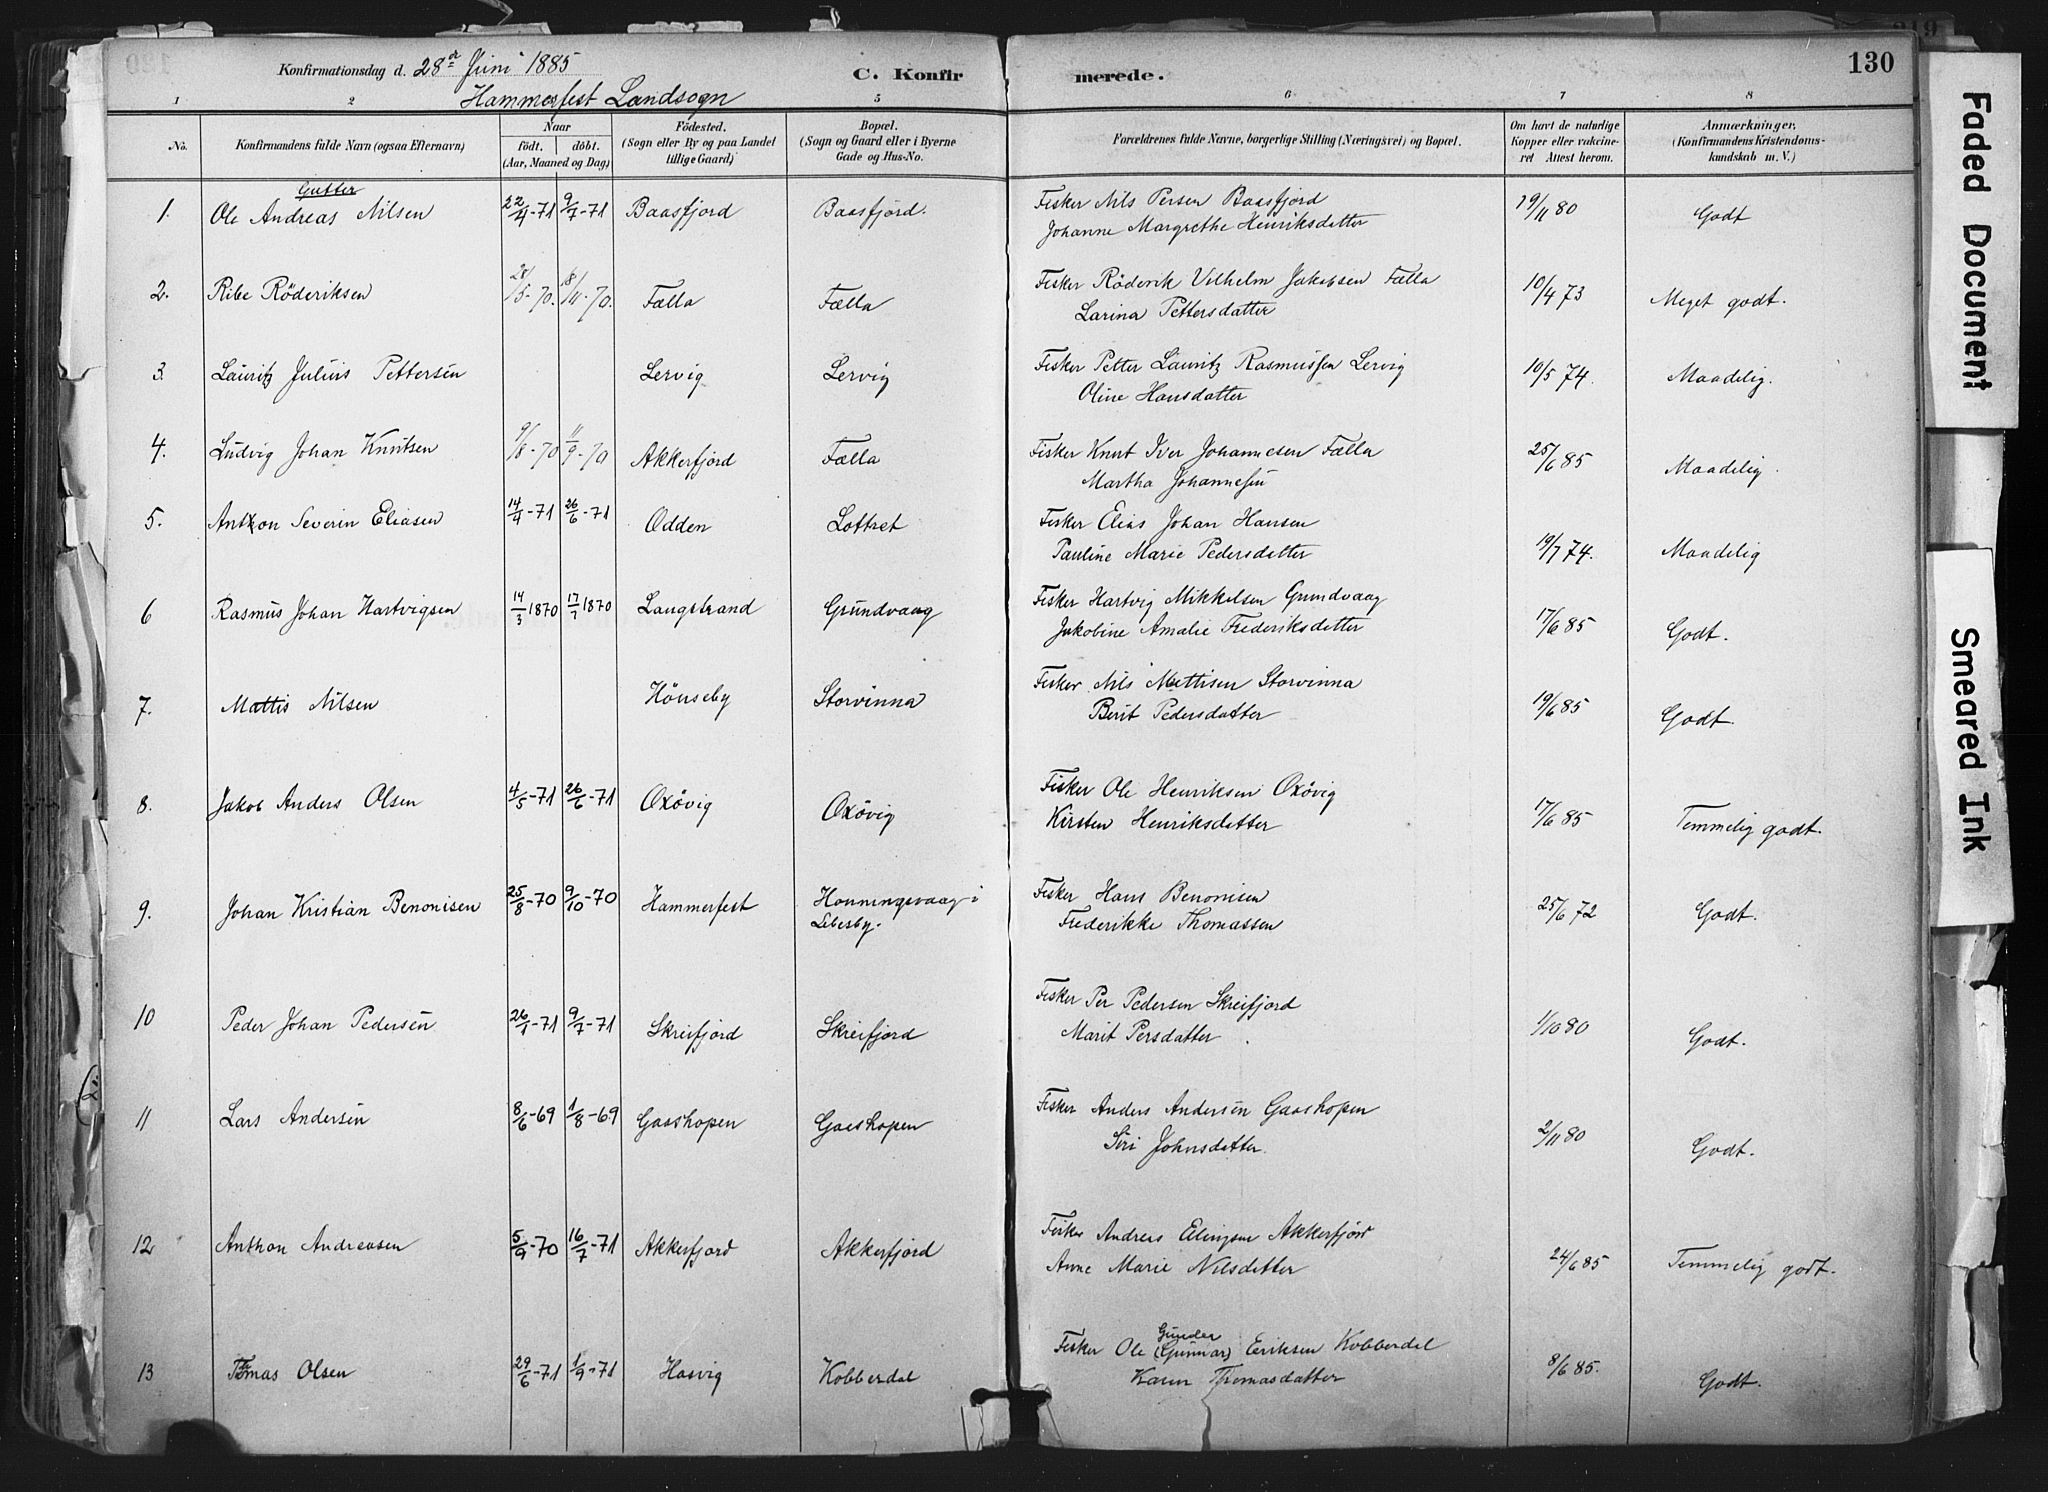 130
Konfirmationsdag d. 28de Juni 1885
C. Konfirmerede.
Hammerfest Landsogn
1 2 5 6 7 8
No. | Konfirmandens fulde Navn (ogsaa Efternavn) | Naar født. døbt. (Aar, Maaned og Dag) | Fødested. (Sogn eller By og paa Landet tillige Gaard) | Bopæl. (Sogn og Gaard eller i Byerne Gade og Hus-No. | Forældrenes fulde Navne, borgerlige Stilling (Næringsvei) og Bopæl. | Om havt de naturlige Kopper eller vakcineret Attest herom. | Anmærkninger. (Konfirmandens Kristendomskundskab m. V.)
Gutter
1. Ole Andreas Nilsen 22/4-71 9/7-71 Baasfjord Baasfjord. Fisker Nils Persen Baasfjord 19/11 80 Godt
Johanne Margrethe Henriksdatter
2. Ribe Röderiksen /5-70. 18/11-70. Fælla Fælla Fisker Röderik Vilhelm Jakobsen Fælla 10/4 73 Meget godt.
Larina Pettersdatter
3. Lauritz Julius Pettersen Lervig Lervig Fisker Petter Lauritz Rasmussen Lervig 10/5 74. Maadelig.
Oline Hansdatter
4. Ludvig Johan Knutsen 9/8-70 11/9-70 Akkerfjord Fælla Fisker Knut Iver Johannesen Fælla 25/6 85 Maadelig.
Martha Johannesen
5. Anthon Severin Eliasen 14/4-71 26/6-71 Odden Lottret Fisker Elias Johan Hansen
Pauline Marie Pedersdatter 19/7 74. Maadelig
6 Rasmus Johan Hartvigsen 14/3 1870 17/7 1870 Langstrand Grundvaag Fisker Hartvig Mikkelsen Grundvaag
Jakobine Amalie Frederiksdatter 17/6 85 Godt.
7. Mattis Nilsen Hönseby Storvinna Fisker Nils Mattisen Storvinna 19/6 85 Godt.
Berit Pedersdatter
8. Jakob Anders Olsen 4/5-71 26/6-71 Oxövig Oxövig Fisker Ole Henriksen Oxövig
Kirsten Henriksdatter 17/6 85 Temmelig godt.
9. Johan Kristian Benonisen 25/8-70 9/10-70 Hammerfest Honningsvaag i Lebesby. Fisker Hans Benonisen 25/6 72 Godt.
Frederikke Thomassen
10 Peder Johan Pedersen 26/1-71 9/7-71 Skreifjord Skreifjord Fisker Per Pedersen Skreifjord
Marit Persdatter 1/10 80 Godt.
11 Lars Andersen 8/6-69 1/8-69 Gaashopen Gaashopen Fisker Anders Andersen Gaashopen
Siri Johnsdatter. 2/11 80 Godt.
12 Anthon Andreasen 5/9-70 16/7-71 Akkerfjord Akkerfjord Fisker Andreas Elingsen Akkerfjord
Anne Marie Nilsdatter 24/6 85 Temmelig godt.
Gunder
13 Thomas Olsen 29/6-71 1/9-71 Hasvig Kobberdal Fisker Ole (Gunnar) Eriksen Kobberdal 8/6 85. Godt.
Karen Thomasdatter
Faded Document
Smeared Ink